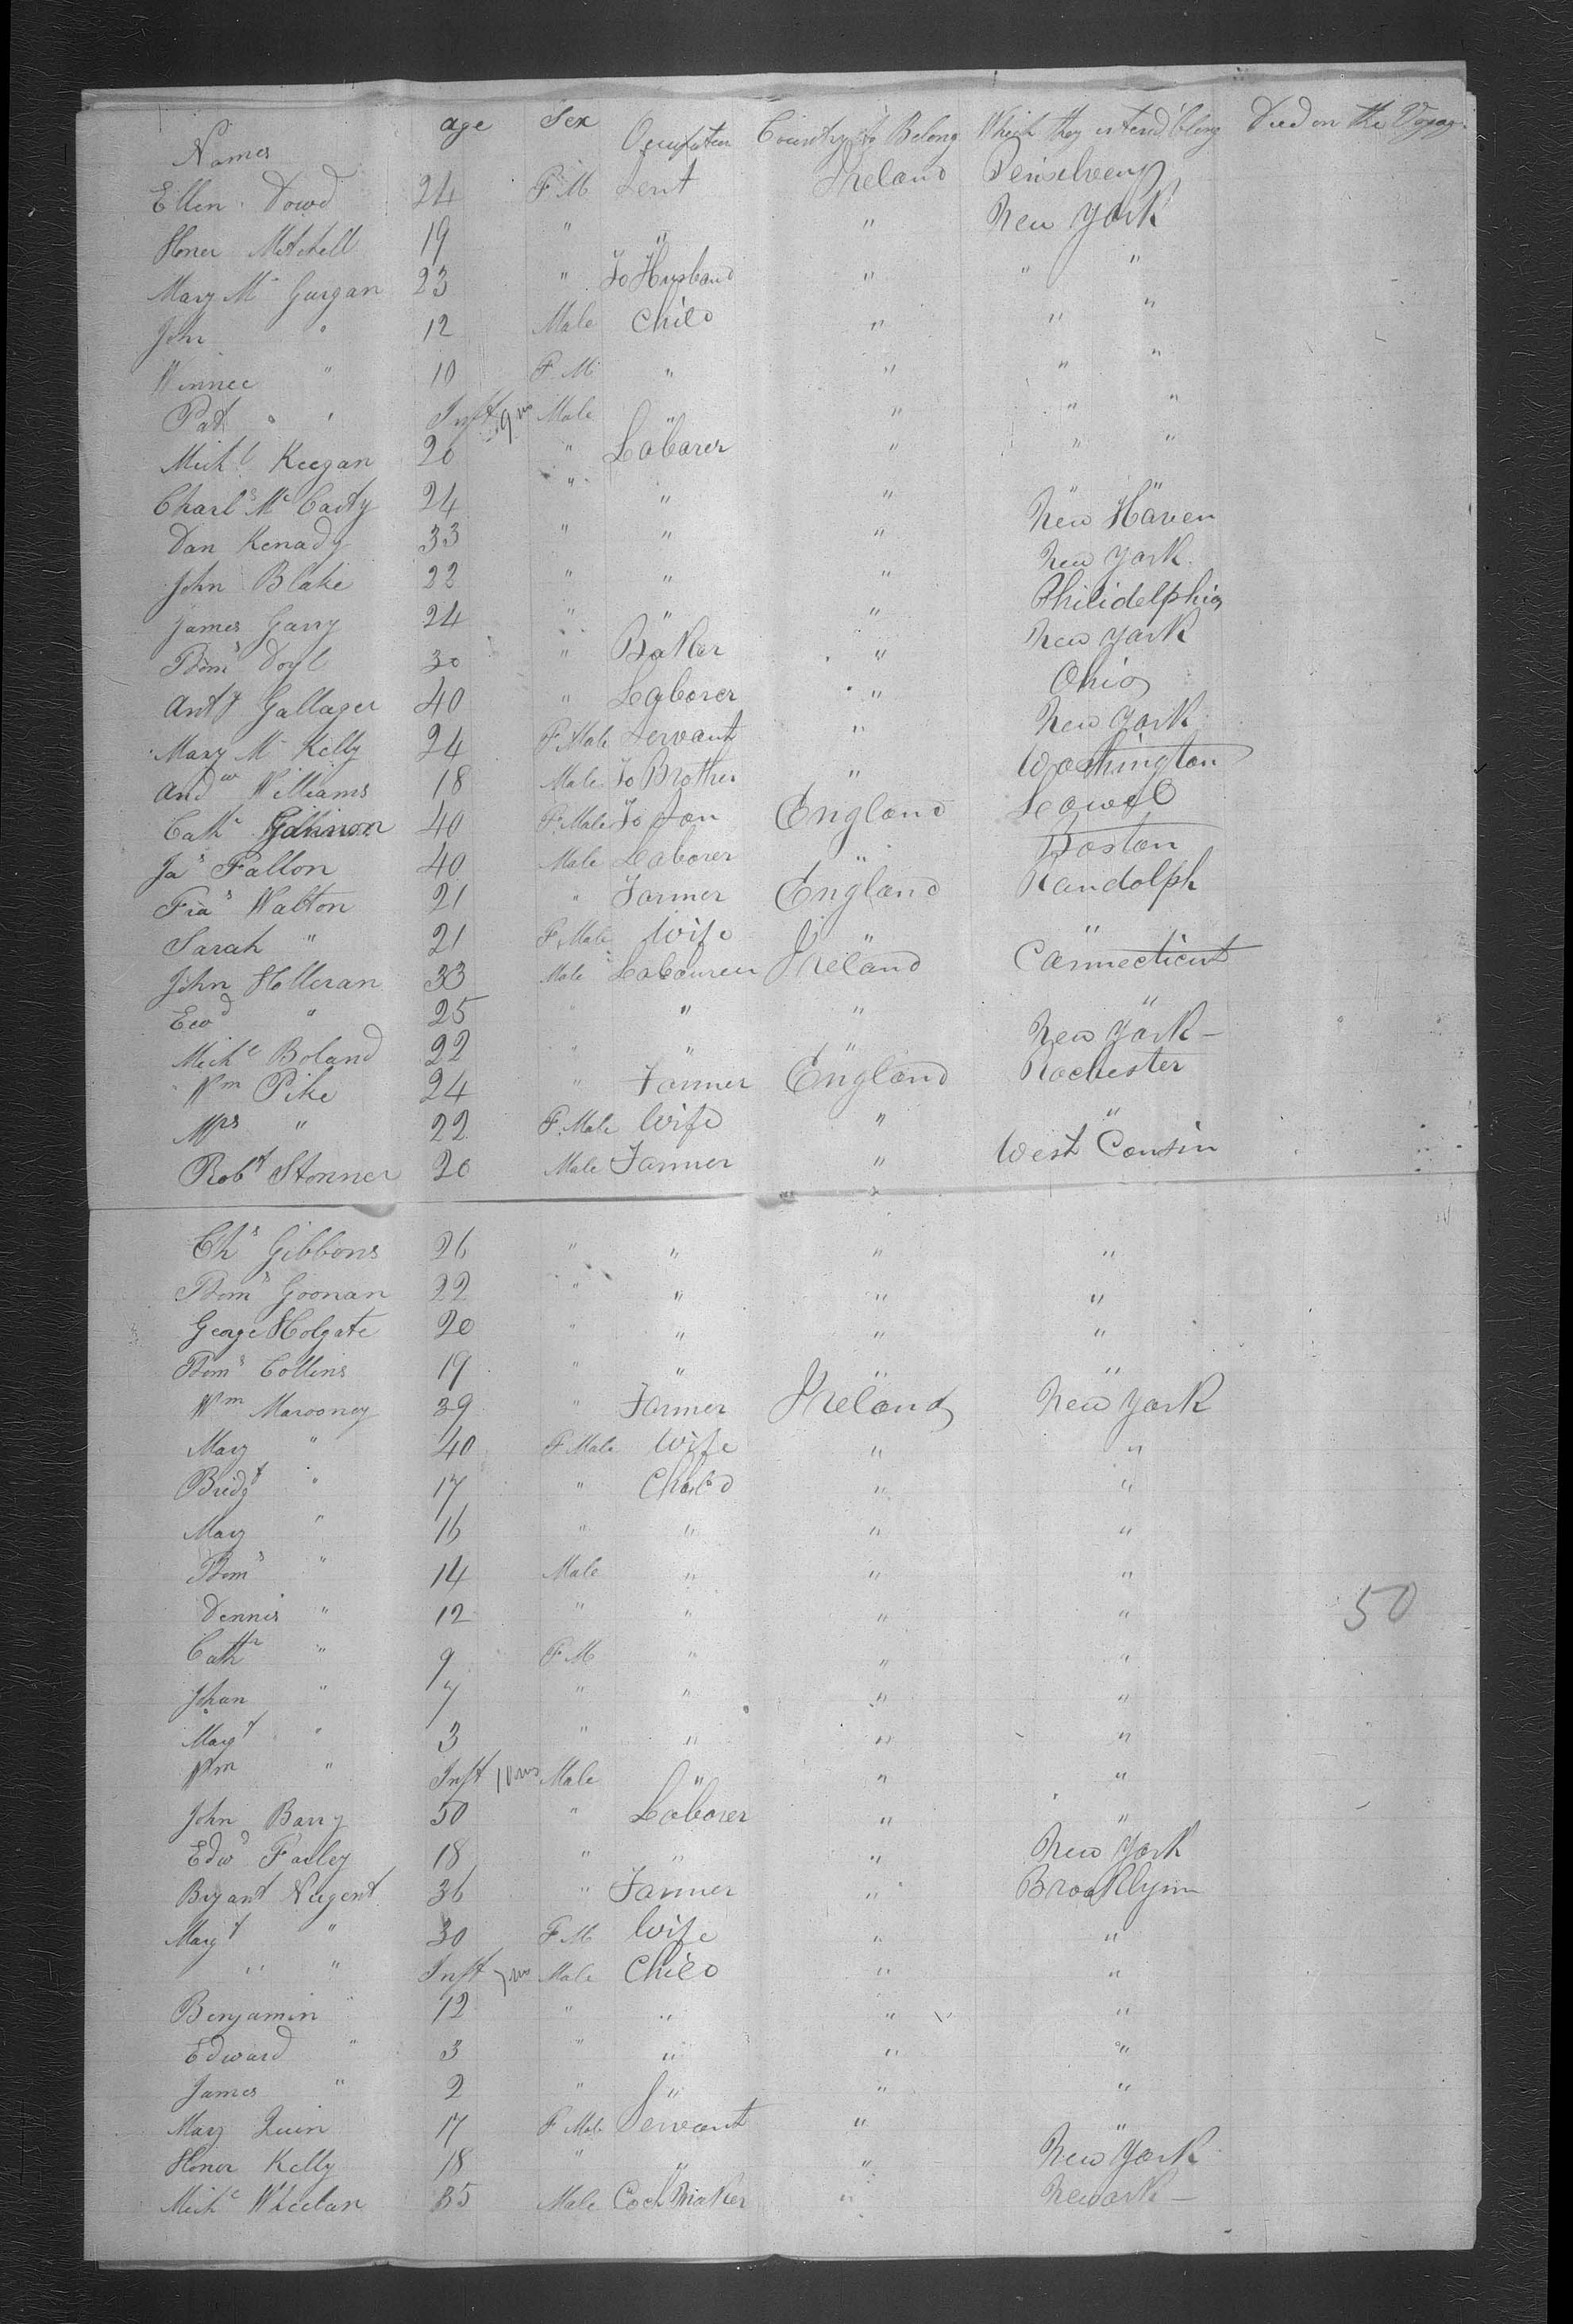 Names age Sex Occupation Country to Belong Which they intend'blong Died on the Voyag
Ellen Dowd 24 F.M Sert Ireland Penselveny
Honer Mitchell 19 " " " New York
Mary Mc Gurgan 23 " To Husband " " "
John " 12 Male Child " " "
Winnee " 10 F.M " " " "
Pat " " Inft 9 ms Male " " " "
Michl Keegan 20 " Laborer " " "
Charls Mc Carty 24 " " " " "
Dan Kenady 33 " " " New Haven
John Blake 22 " " " New York
James Garry 24 " " " Philidelphia
Thoms Doyl 30 " Baker " New York
Anty Gallager 40 " Laborer " Ohio
Mary Mc Kelly 24 F.Male Servant " New York
Andw Williams 18 Male To Brother " Washington
Cathe Gannon 40 F.Male To Son England Lowel
Jas Fallon 40 Male Laborer " Boston
Fras Walton 21 " Farmer England Randolph
Sarah " 21 F.Male Wife " "
John Holleran 33 Male Labourer Ireland Connecticut
Edwd " 25 " " " "
Michl Boland 22 " " " New York -
Wm Pike 24 " Farmer England Rochester
Mrs " 22 F.Male Wife " "
Robt Stonner 20 Male Farmer " West Consin
Chs Gibbons 26 " " " "
Thoms Goonan 22 " " " "
George Holgate 20 " " " "
Thoms Collins 19 " " " "
Wm Marooney 39 " Farmer Ireland New York
Mary " 40 F.Male Wife " "
Bridgt " 17 " Child " "
Mary " 16 " " " "
Thoms " 14 Male " " "
Dennis " 12 " " " " 50
Cathe " 9 F.M " " "
Johan " 7 " " " "
Margt " 3 " " " "
Wm " Inft 10 ms Male " " "
John Barry 50 " Laborer " "
Edwd Farley 18 " " " New York
Bryant Nugent 36 " Farmer " Brooklynn
Margt " 30 F.M Wife " "
" " Inft 7 ms Male Child " "
Benjamin " 12 " " " "
Edward " 3 " " " "
James " 2 " " " "
Mary Quin 17 F.Male Servant " "
Honer Kelly 18 " " " New York
Michl Wheelan 35 Male Coch Maker " Newark -